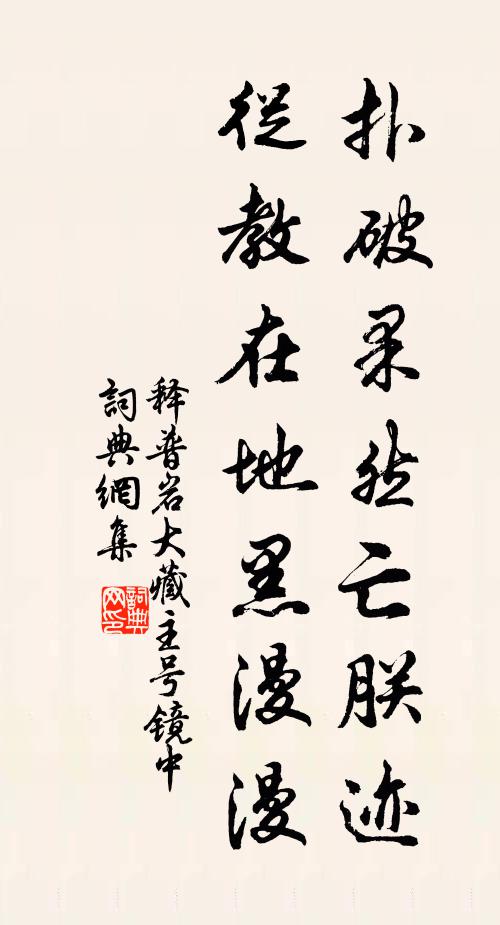 扑破果然亡朕迹
從教在地黑漫漫
释普岩大藏主号镜中
詞典網集
詞典
网印